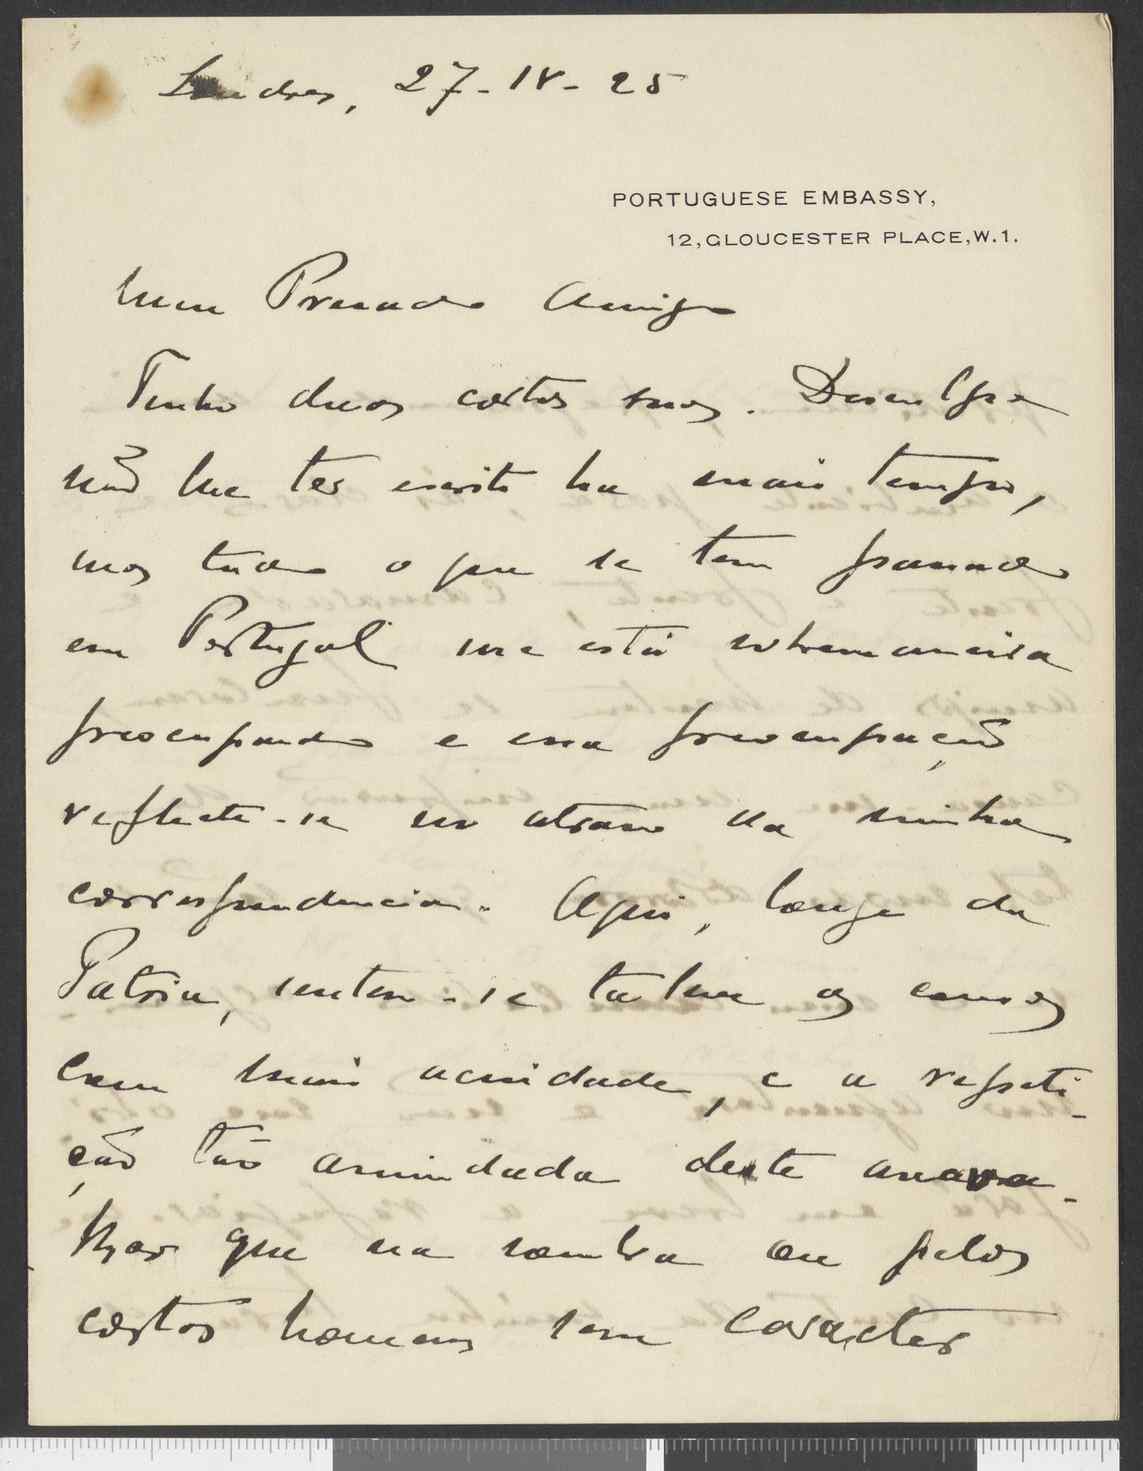 Londres, 27-IV-25
PORTUGUESE EMBASSY,
12, GLOUCESTER PLACE, W.1.
Meu Presado Amigo
Tenho duas cartas suas. Desculpe
não lhe ter escrito ha mais tempo,
mas tudo o que se tem passado
em Portugal me está sobremaneira
preocupando e essa preocupação
reflecte-se no atraso da minha
correspondencia. Aqui, longe da
Patria, sentem-se talvez as cousas
com mais acuidade, e a repeti-
ção tão amiudada deste
que na sombra ou pelas
costas homens sem caracter